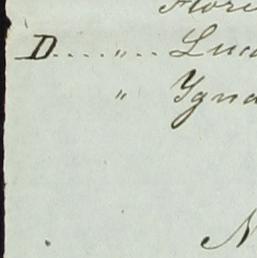 Flore
D....〃.. Luc
〃 Ygna
N